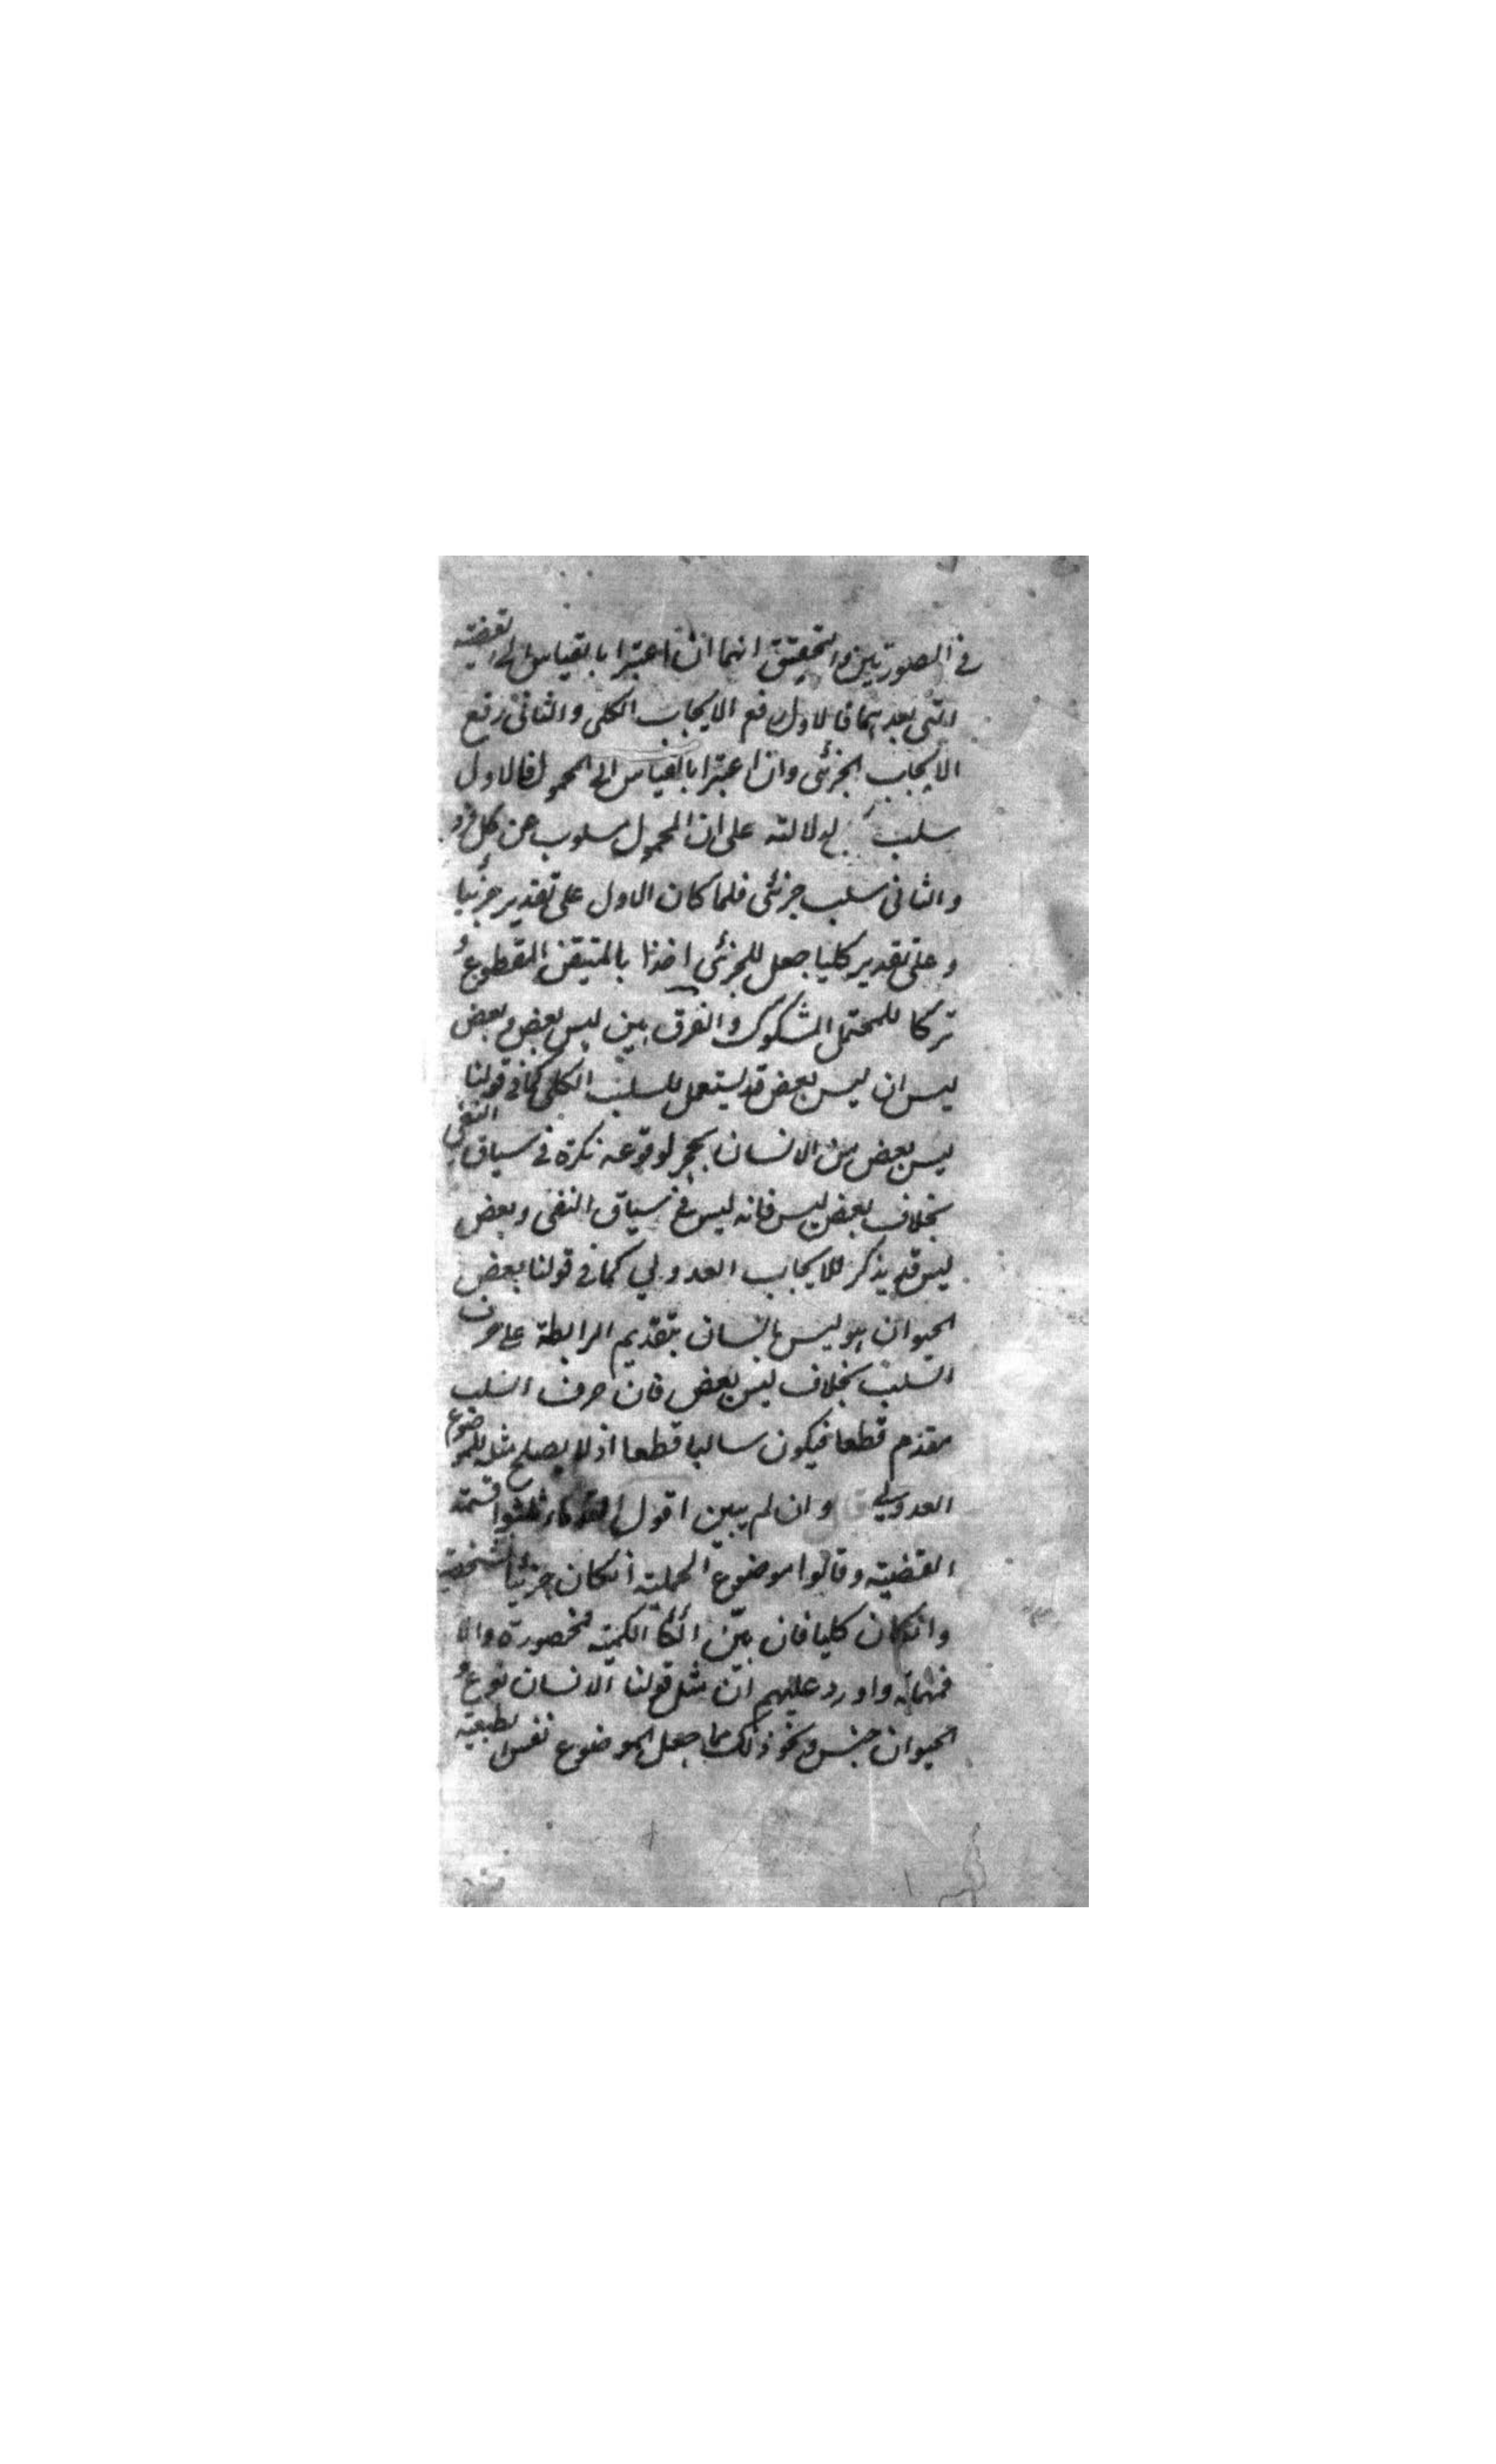 في الصورتين والتحقيق انهما ان اعتبرا بالقياس الى القضية
التي بعدهما فالاول رفع الايجاب الكلي والثاني رفع
الايجاب الجزئي وان اعتبرا بالقياس الى المحمول فالاول
سلب لدلالته على ان المحمول مسلوب عن كل فرد
والثاني سلب جزئي فلما كان الاول على تقدير جزئيا
وعلى تقدير كليا جعل للجزئي اخذا بالمتيقن المقطوع و
تركا للمحتمل المشكوك والفرق بين ليس بعض وبعض
ليس ان ليس بعض قد يستعمل للسلب الكلي كما في قولنا
ليس بعض من الانسان بحجر لوقوعه نكرة في سياق النفي
بخلاف بعض ليس فانه ليس في سياق النفي وبعض
ليس قد يذكر للايجاب العدولي كما في قولنا بعض
الحيوان هو ليس بانسان بتقديم الرابطة على حرف
السلب بخلاف ليس بعض فان حرف السلب
مقدم قطعا فيكون سالبا قطعا اذ لا يصلح مثله للموضوع
العدولي قال وان لم يبين اقول القدماء ثلثوا قسمة
القضية وقالوا موضوع الحملية انكان جزئيا فشخصية
وانكان كليا فان بين الكمية فمحصورة والا
فمهملة واورد عليهم ان مثل قولنا الانسان نوع و
الحيوان جنس ونحو ذلك مما جعل الموضوع نفس الطبيعة